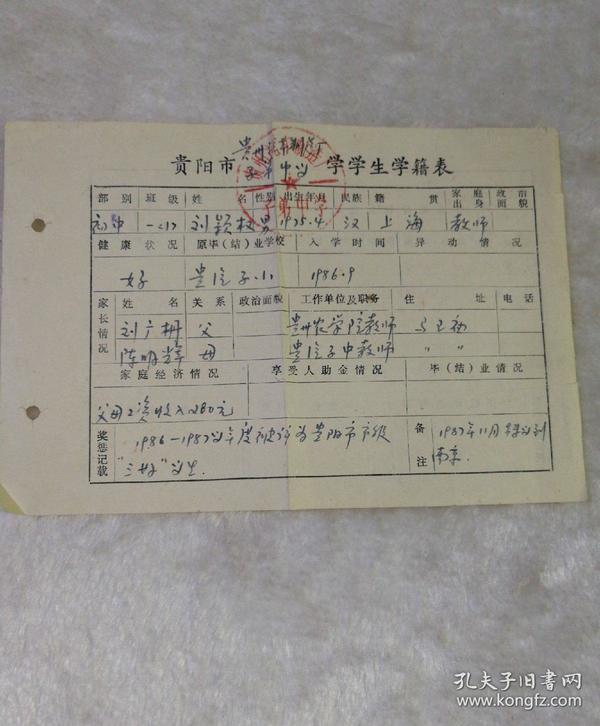 贵阳市 子弟中 学学生学籍表
部别 班级 姓名 性别 出生年月 民族 籍贯 家庭出身 政治面貌
初中 一(1) 刘颖 男 1975.4. 汉 上海 教师
健康状况 原毕(结)业学校 入学时间 异动情况
好 贵 子小 1986.9
家长情况 姓名 关系 政治面貌 工作单位及职务 住址 电话
刘广 父 贵州农学院教师
陈明 母 贵 子中教师 〃 〃
家庭经济情况 享受人助金情况 毕(结)业情况
父母工资收入280元
奖惩记载 1986—1987学年度被评为贵阳市市级 备注 1987年11月转学到
"三好"学生. 南京.
孔夫子旧书网
www.kongfz.com